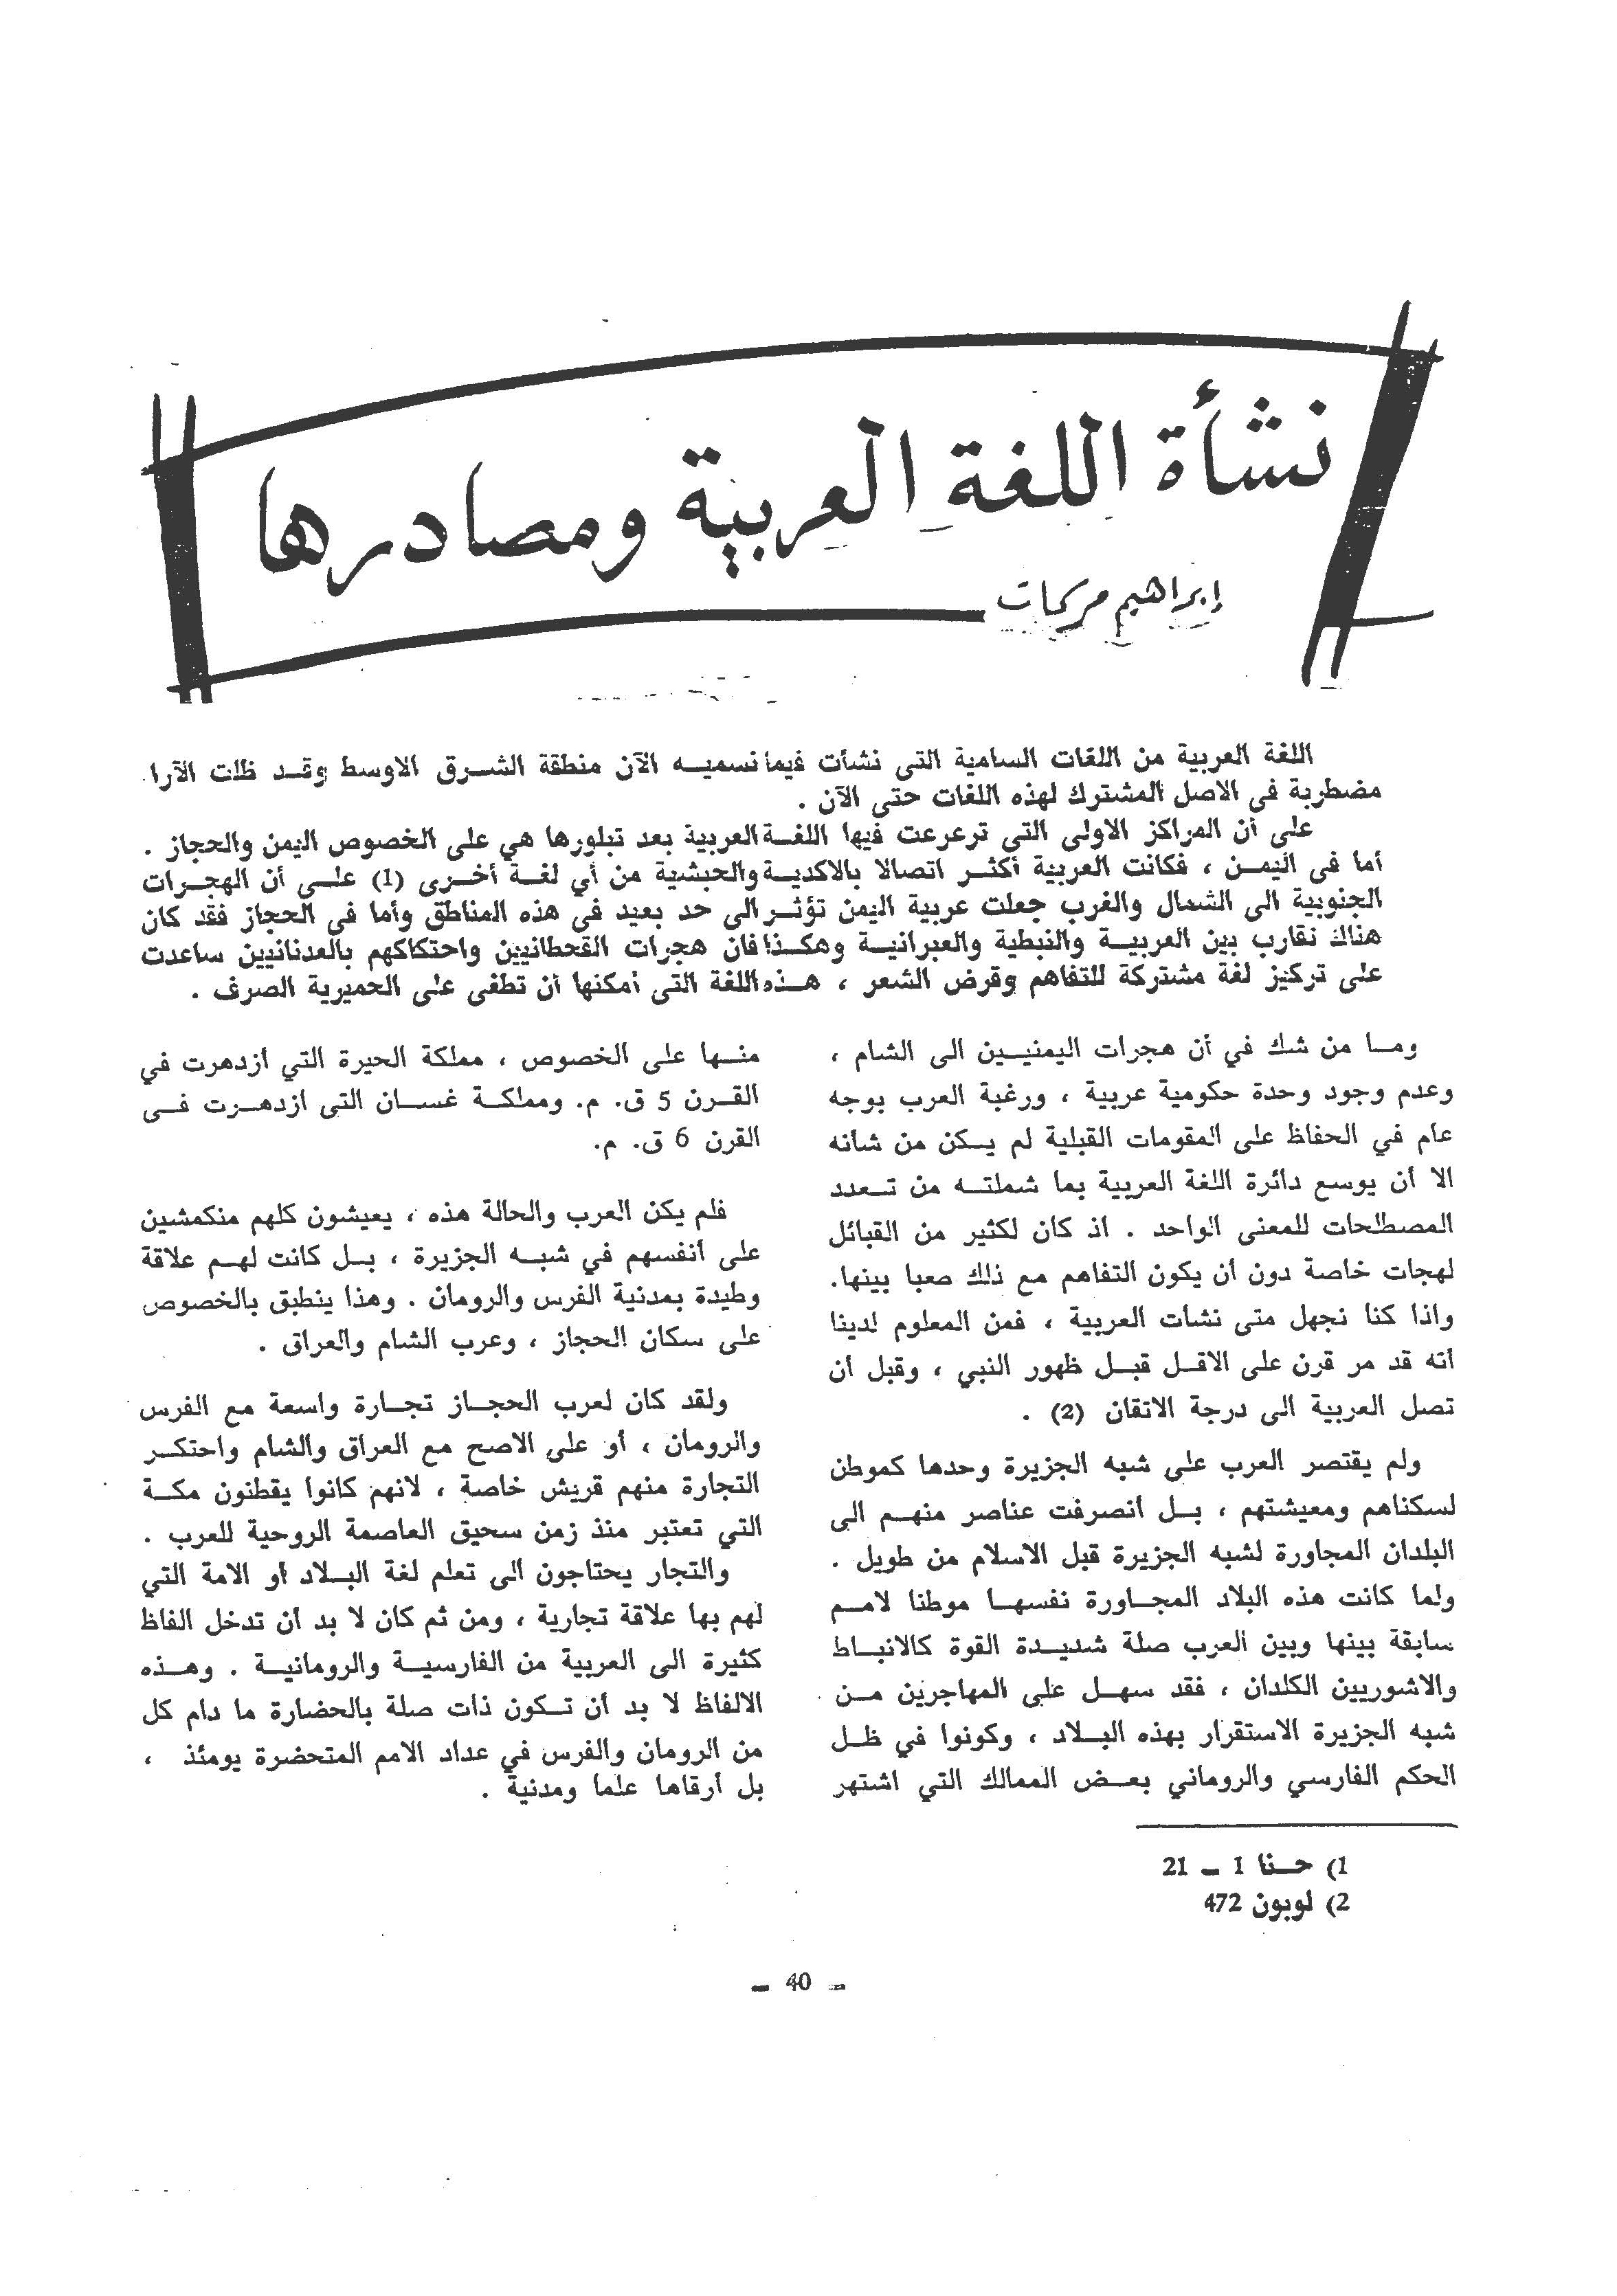 نشأة اللغة العربية ومصادرها
إبراهيم حركات
اللغة العربية من اللغات السامية التى نشأت فيما نسميه الآن منطقة الشرق الاوسط وقد ظلت الآرا
مضطربة فى الاصل المشترك لهذه اللغات حتى الآن .
على أن المراكز الاولى التى ترعرعت فيها اللغة العربية بعد تبلورها هي على الخصوص اليمن والحجاز .
أما فى اليمن ، فكانت العربية أكثر اتصالا بالاكدية والحبشية من أي لغة أخرى (1) على أن الهجرات
الجنوبية الى الشمال والغرب جعلت عربية اليمن تؤثر الى حد بعيد فى هذه المناطق وأما فى الحجاز فقد كان
هناك تقارب بين العربية والنبطية والعبرانية وهكذا فان هجرات القحطانيين واحتكاكهم بالعدنانيين ساعدت
على تركيز لغة مشتركة للتفاهم وقرض الشعر ، هذه اللغة التى أمكنها أن تطغى على الحميرية الصرف .
وما من شك في أن هجرات اليمنيين الى الشام ،
وعدم وجود وحدة حكومية عربية ، ورغبة العرب بوجه
عام في الحفاظ على المقومات القبلية لم يكن من شأنه
الا أن يوسع دائرة اللغة العربية بما شملته من تعدد
المصطلحات للمعنى الواحد . اذ كان لكثير من القبائل
لهجات خاصة دون أن يكون التفاهم مع ذلك صعبا بينها.
واذا كنا نجهل متى نشأت العربية ، فمن المعلوم لدينا
أنه قد مر قرن على الاقل قبل ظهور النبي ، وقبل أن
تصل العربية الى درجة الاتقان (2) .
ولم يقتصر العرب على شبه الجزيرة وحدها كموطن
لسكناهم ومعيشتهم ، بل أنصرفت عناصر منهم الى
البلدان المجاورة لشبه الجزيرة قبل الاسلام من طويل .
ولما كانت هذه البلاد المجاورة نفسها موطنا لامم
سابقة بينها وبين العرب صلة شديدة القوة كالانباط
والاشوريين الكلدان ، فقد سهل على المهاجرين من
شبه الجزيرة الاستقرار بهذه البلاد ، وكونوا في ظل
الحكم الفارسي والروماني بعض الممالك التي اشتهر
منها على الخصوص ، مملكة الحيرة التي ازدهرت في
القرن 5 ق. م. ومملكة غسان التى ازدهرت فى
القرن 6 ق. م.
فلم يكن العرب والحالة هذه ، يعيشون كلهم منكمشين
على أنفسهم في شبه الجزيرة ، بل كانت لهم علاقة
وطيدة بمدنية الفرس والرومان . وهذا ينطبق بالخصوص
على سكان الحجاز ، وعرب الشام والعراق .
ولقد كان لعرب الحجاز تجارة واسعة مع الفرس
والرومان ، أو على الاصح مع العراق والشام واحتكر
التجارة منهم قريش خاصة ، لانهم كانوا يقطنون مكة
التي تعتبر منذ زمن سحيق العاصمة الروحية للعرب .
والتجار يحتاجون الى تعلم لغة البلاد أو الامة التي
لهم بها علاقة تجارية ، ومن ثم كان لا بد أن تدخل الفاظ
كثيرة الى العربية من الفارسية والرومانية . وهذه
الالفاظ لا بد أن تكون ذات صلة بالحضارة ما دام كل
من الرومان والفرس في عداد الامم المتحضرة يومئذ ،
بل أرقاها علما ومدنية .
1) حنا 1 - 21
2) لوبون 472
- 40 -